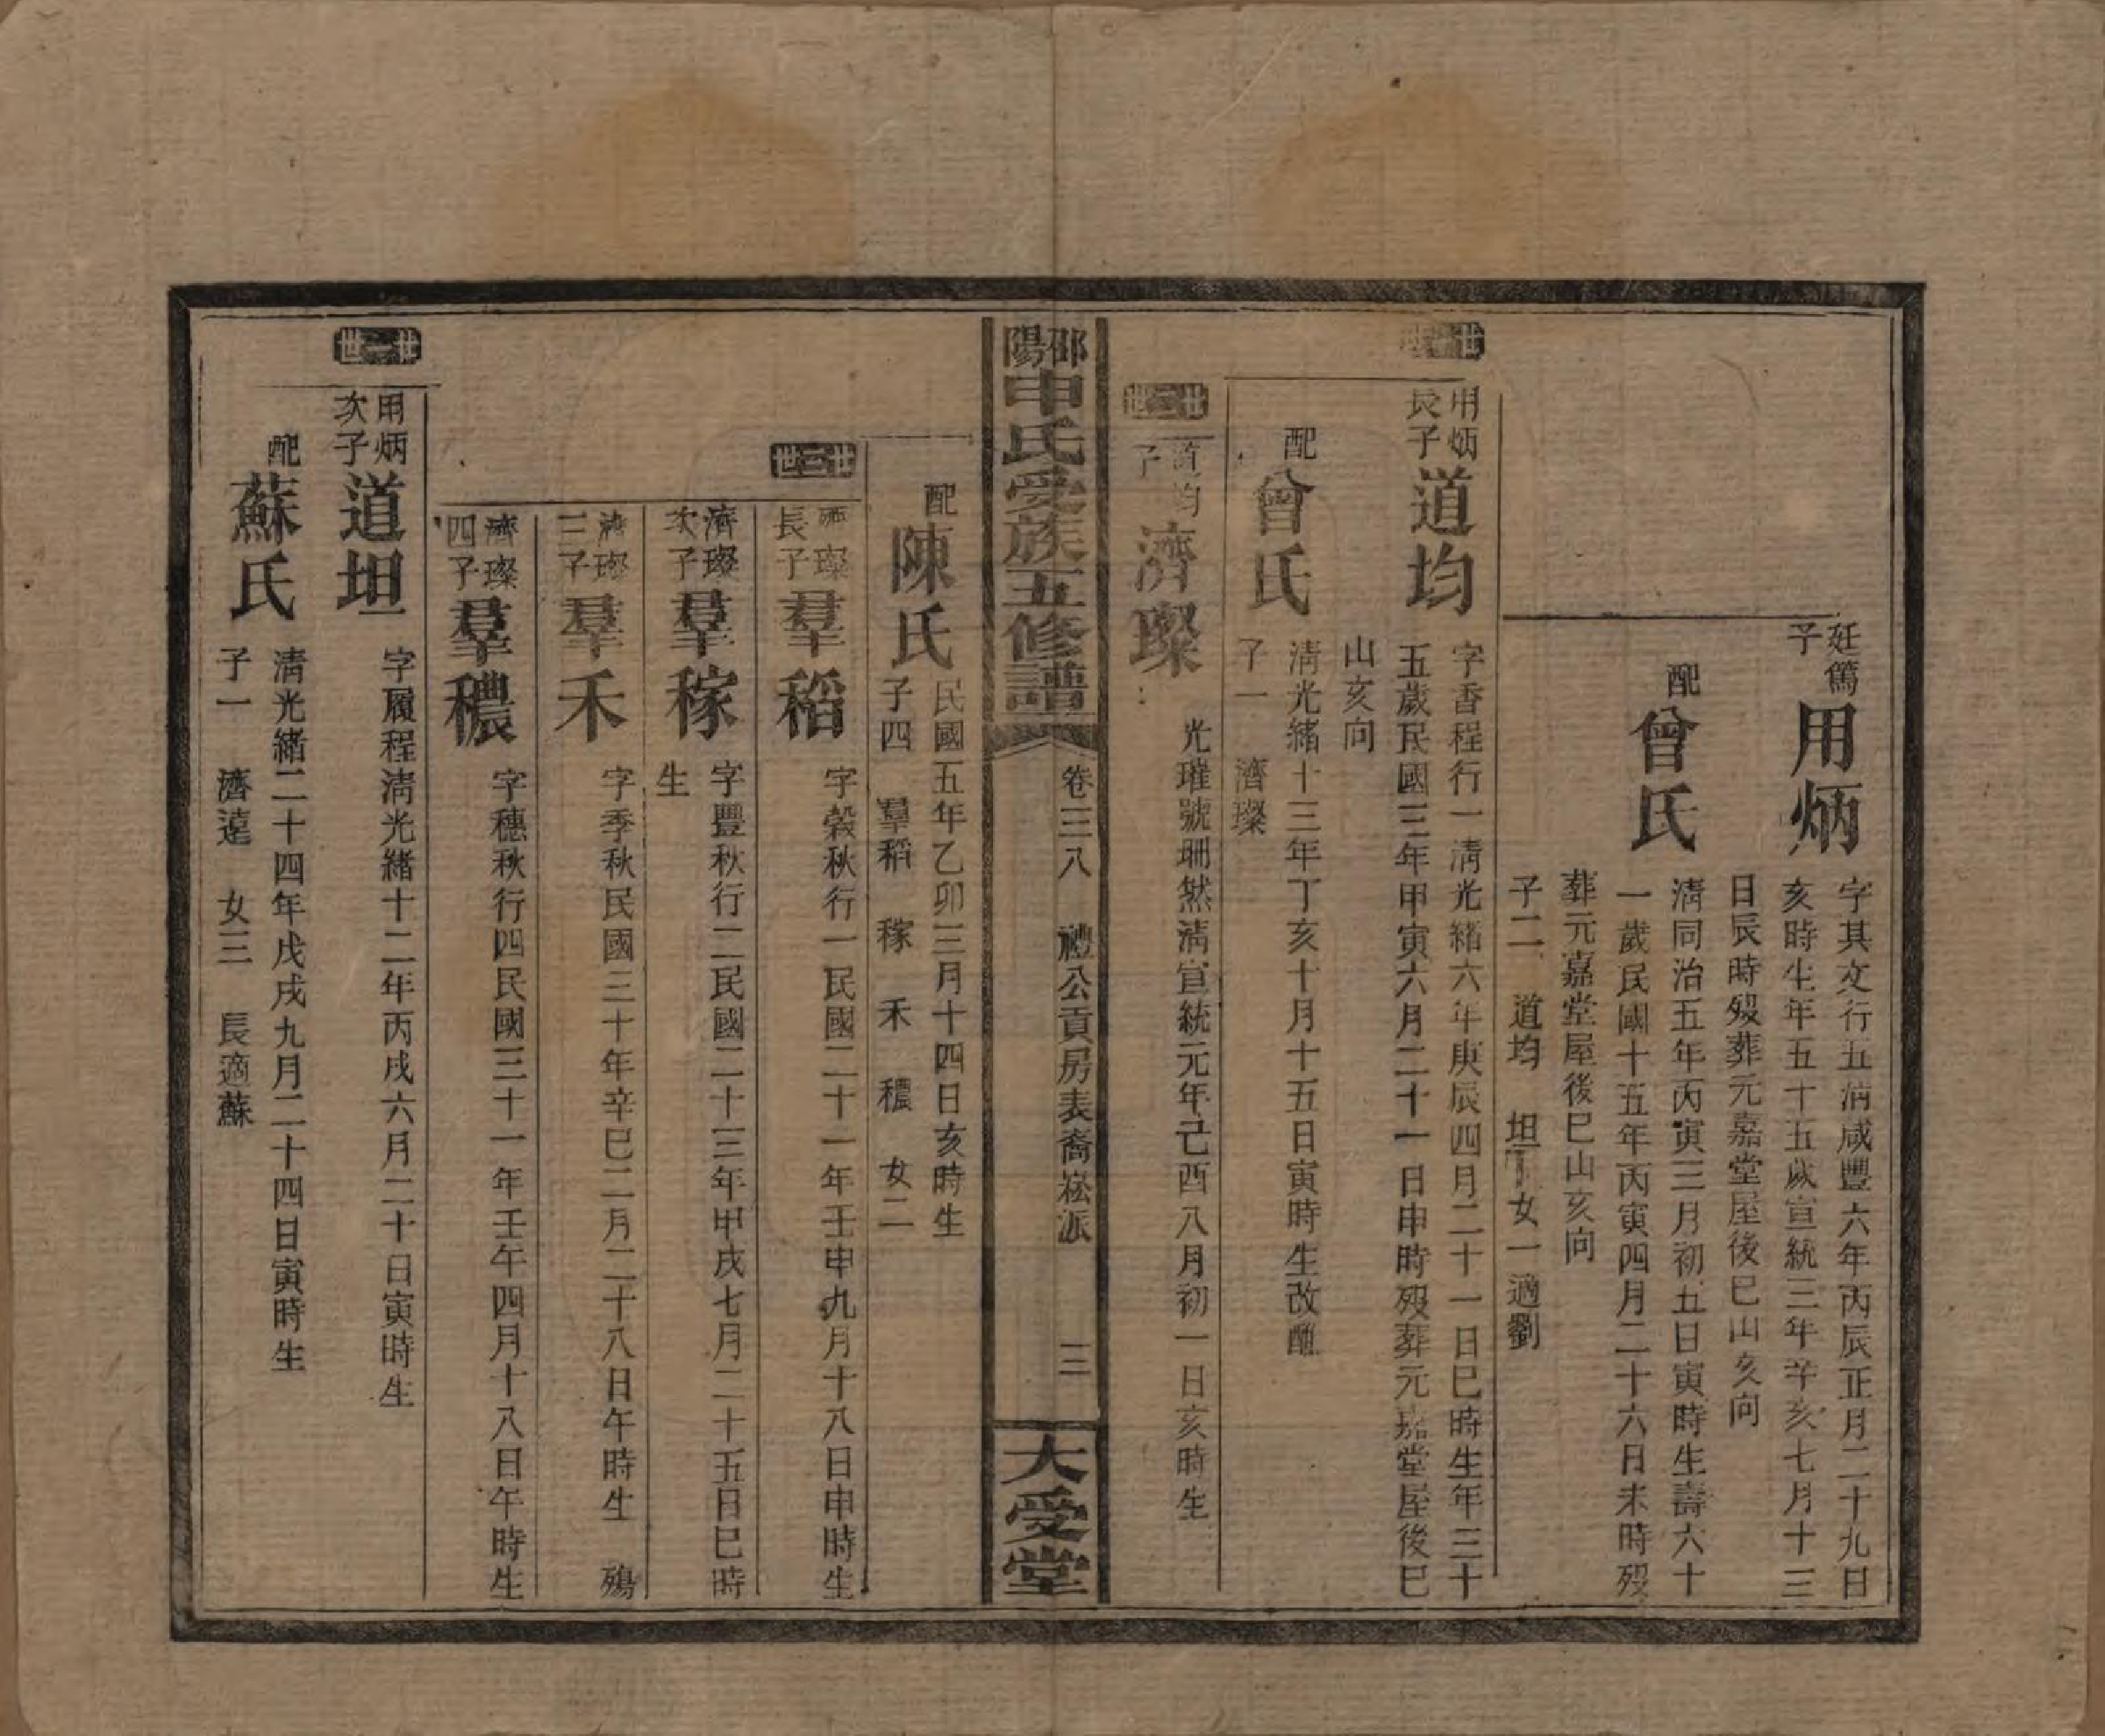 廷篤
子
用炳
字其文行五清咸豐六年丙辰正月二十九日
亥時生年五十五歲宣統三年辛亥七月十三
日辰時歿葬元嘉堂屋後巳山亥向
配
曾氏
清同治五年丙寅三月初五日寅時生壽六十
一歲民國十五年丙寅四月二十六日未時歿
葬元嘉堂屋後巳山亥向
子二 道均 坦 女一適劉
用炳
長子
道均
字香程行一清光緒六年庚辰四月二十一日巳時生年三十
五歲民國三年甲寅六月二十一日申時歿葬元嘉堂屋後巳
山亥向
配
曾氏
清光緒十三年丁亥十月十五日寅時生改醮
子一 濟璨
廿二世
道均
子
濟璨
光璀號珊然清宣統元年己酉八月初一日亥時生
邵陽
申氏受族五修譜
卷三八 禮公貢房表裔崧派 三
大受堂
配
陳氏
民國五年乙卯三月十四日亥時生
子四 羣稻 稼 禾 穠 女二
廿三世
濟璨
長子
羣稻
字穀秋行一民國二十一年壬申九月十八日申時生
濟璨
次子
羣稼
字豐秋行二民國二十三年甲戌七月二十五日巳時
生
濟璨
三子
羣禾
字季秋民國三十年辛巳二月二十八日午時生 殤
濟璨
四子
羣穠
字穗秋行四民國三十一年壬午四月十八日午時生
廿一世
用炳
次子
道坦
字履程清光緒十二年丙戌六月二十日寅時生
配
蘇氏
清光緒二十四年戊戌九月二十四日寅時生
子一 濟遠 女三 長適蘇